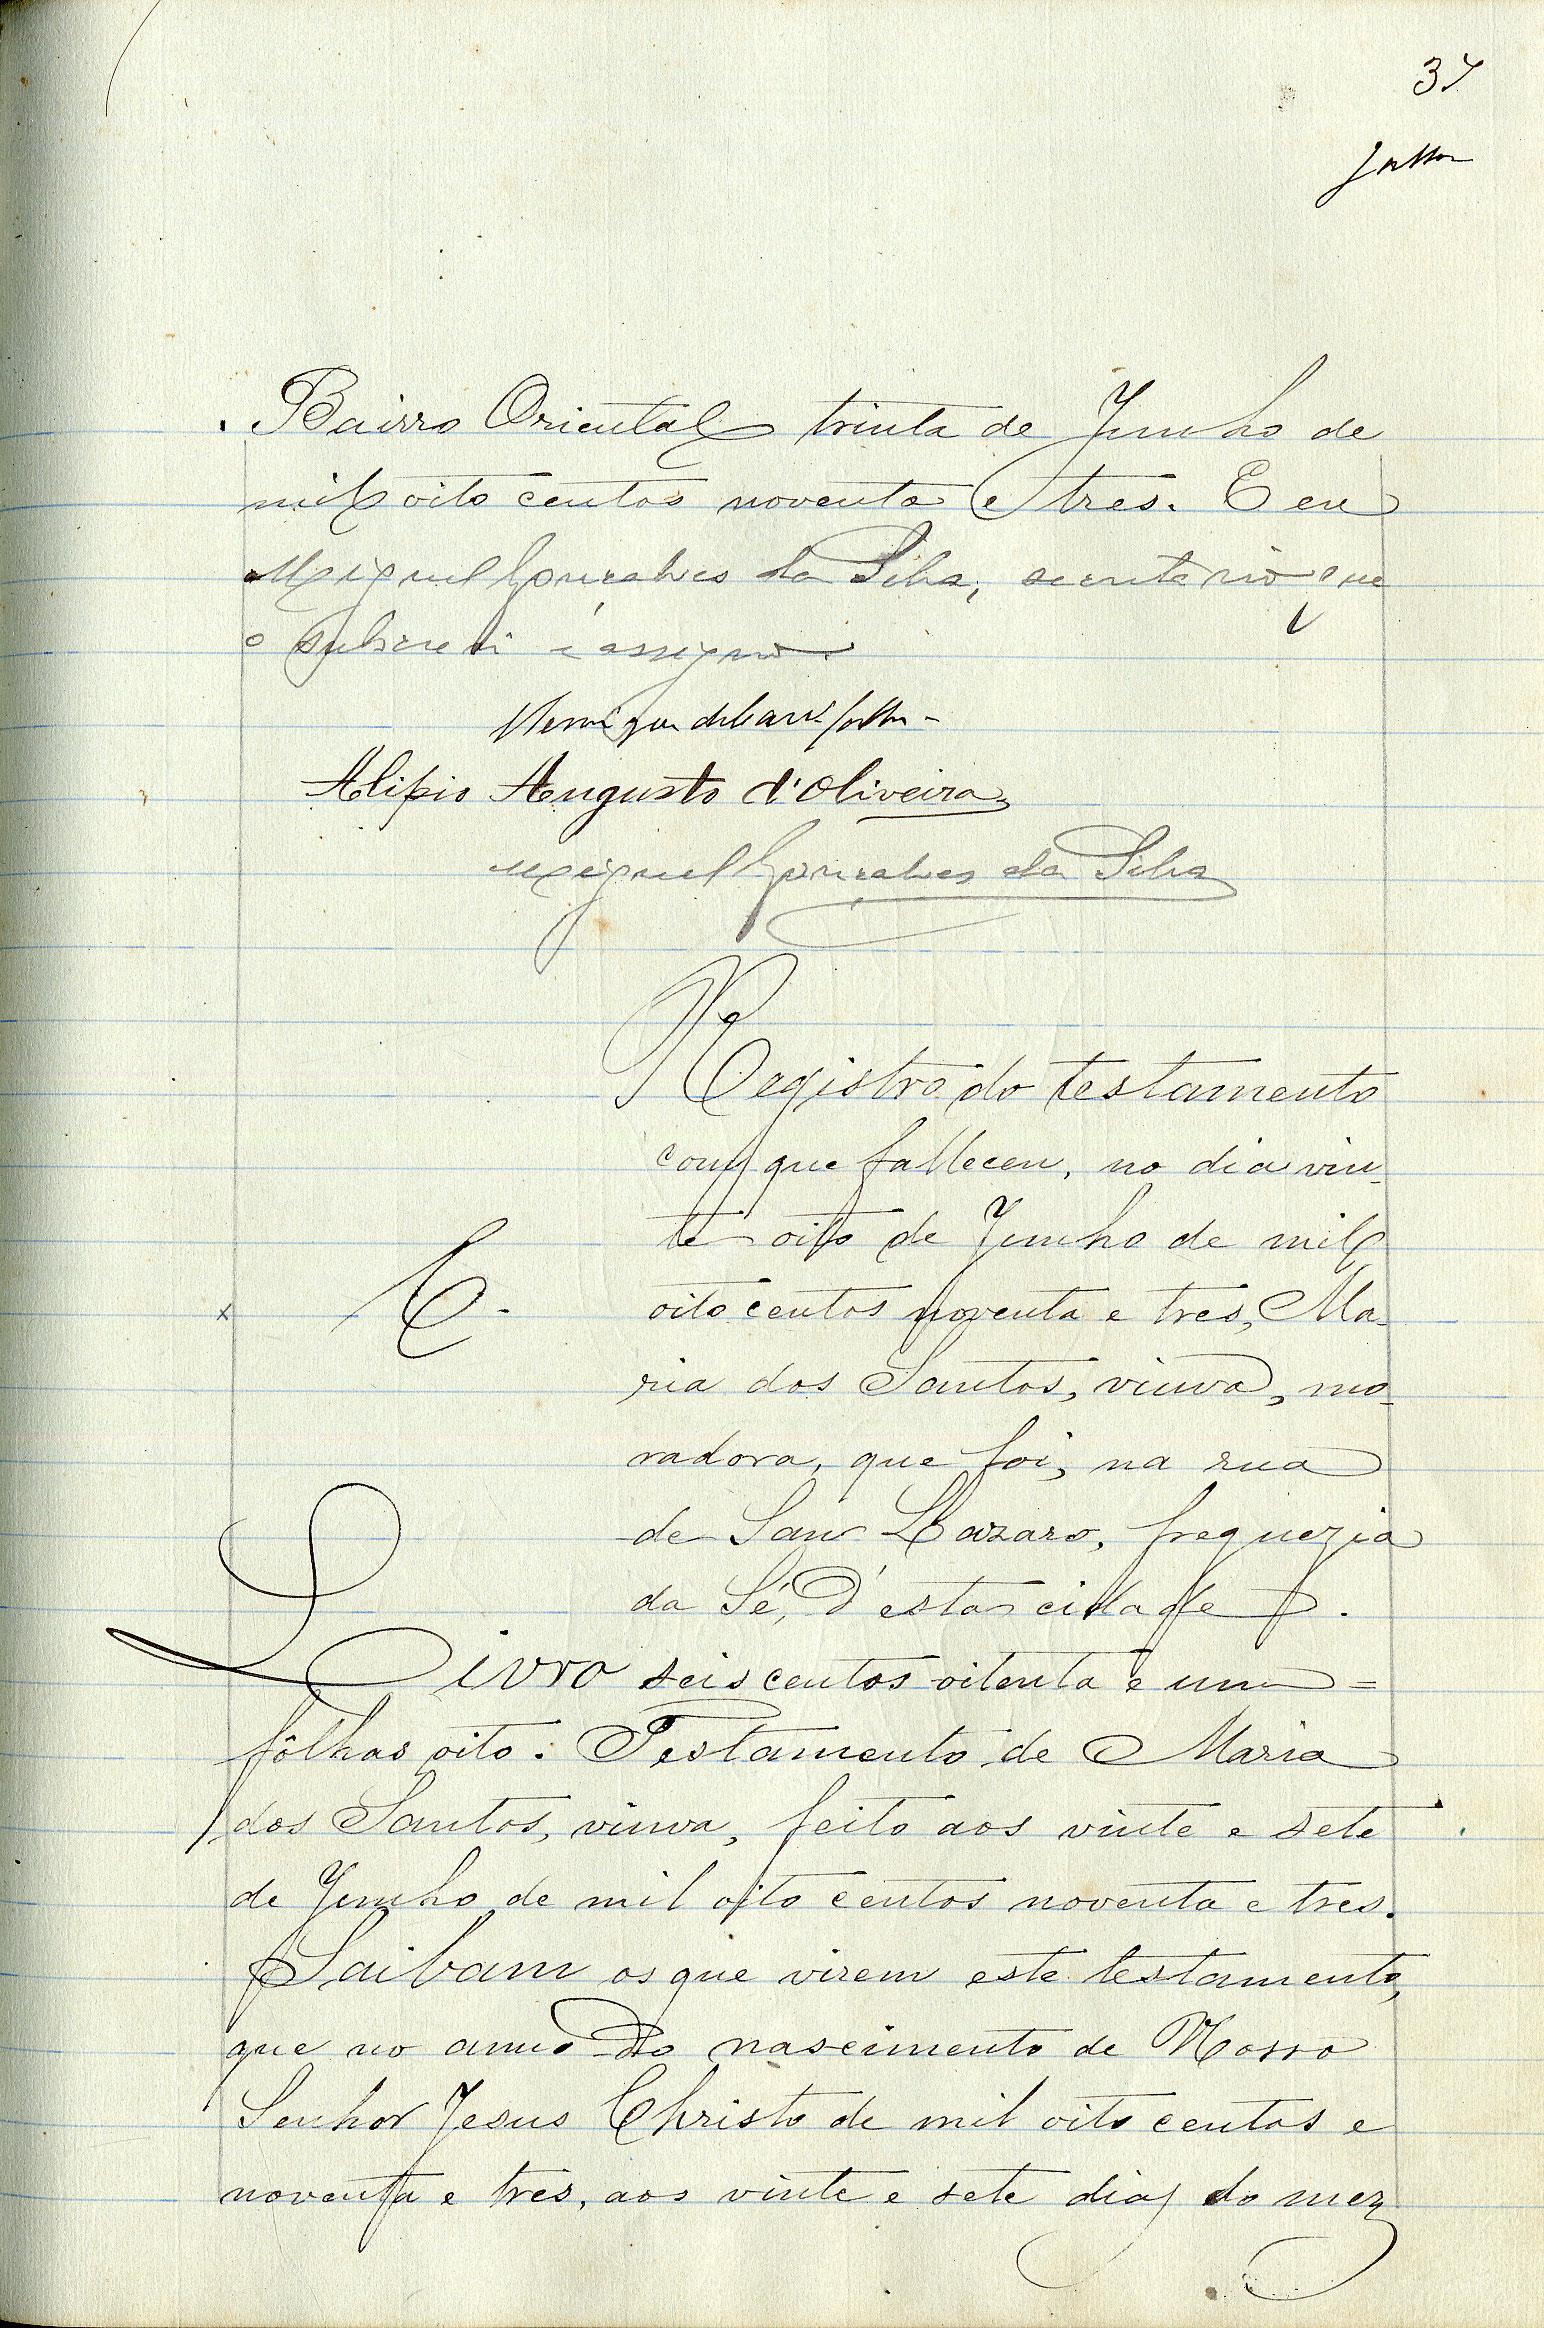 37
Bairro Oriental trinta de Junho de
mil oito centos noventa e tres. E eu
Miguel Gonçalves da Silva, secretario que
o subscrevi e assigno
Alipio Augusto d'Oliveira
Miguel Gonçalves da Silva
Registro do testamento
com que falleceu, no dia vin-
te oito de Junho de mil
oito centos noventa e tres, Ma-
ria dos Santos, viuva, mo-
radora, que foi, na rua
de San Lazaro, freguezia
da Sé, d'esta cidade.
Livro seis centos oitenta e um =
fôlhas oito. Testamento de Maria
dos Santos, viuva, feito aos vinte e sete
de Junho de mil oito centos noventa e tres.
Saibam os que virem este testamento,
que no anno do nascimento de Nosso
Senhor Jesus Christo de mil oito centos e
noventa e tres, aos vinte e sete dias do mez